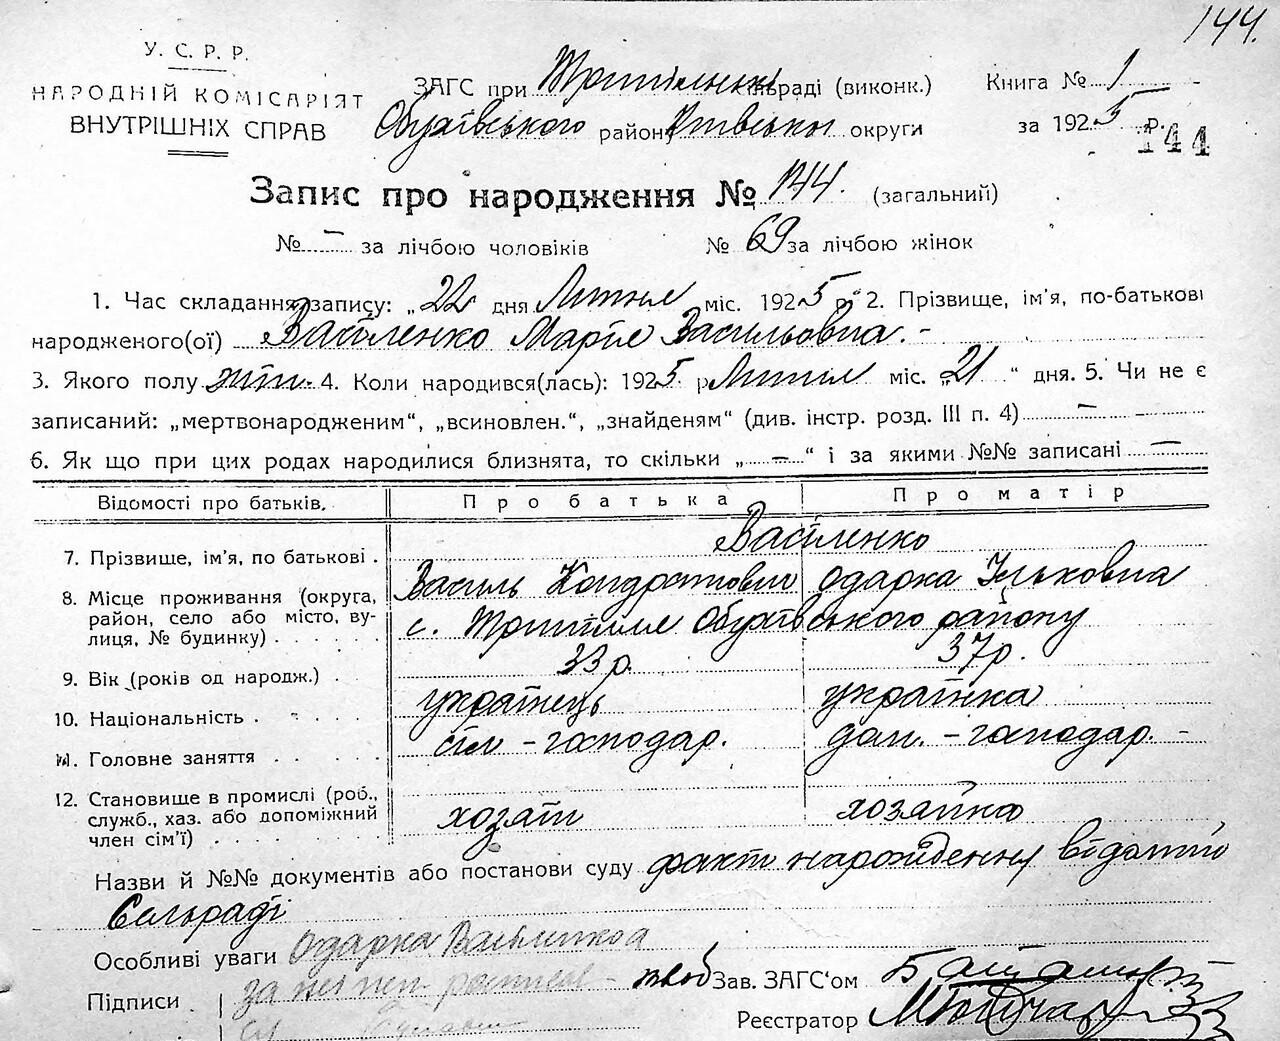 144.
У. С. Р. Р.
НАРОДНІЙ КОМІСАРІЯТ
ВНУТРІШНІХ СПРАВ
ЗАГС при Трипільськ раді (виконк.)
Обухівського району Київської округи
Книга № 1
за 1925 р.
144
Запис про народження № 144. (загальний)
№ – за лічбою чоловіків № 69 за лічбою жінок
1. Час складання запису: „22 дня Липня міс. 1925 р. 2. Прізвище, ім'я, по-батькові
народженого(ої) Василенко Марія Васильовна. -
3. Якого полу жін. 4. Коли народився(лась): 1925 р. Липня міс. „21 “ дня. 5. Чи не є
записаний: „мертвонародженим“, „всиновлен.“, „знайденям“ (див. інстр. розд. III п. 4) –
6. Як що при цих родах народилися близнята, то скільки „ – “ і за якими №№ записані –
Відомості про батьків. Про батька Про матір
7. Прізвище, ім'я, по батькові . Василенко
Василь Кондратович Одарка Ільковна
8. Місце проживання (округа, район, село або місто, ву-
лиця, № будинку) . . . . . с. Трипілля Обухівського району
9. Вік (років од народж.) . 33 р. 37 р.
10. Національність . . . . . українець українка
11. Головне заняття . . . . . сіл - господар. дом. - господар. -
12. Становище в промислі (роб.,
служб., хаз. або допоміжний
член сім'ї) . . . . хозяїн хозяйка
Назви й №№ документів або постанови суду факт народження відомий
Сельраді
Особливі уваги Одарка Василенкова
Підписи за
Зав. ЗАГС'ом
Реєстратор